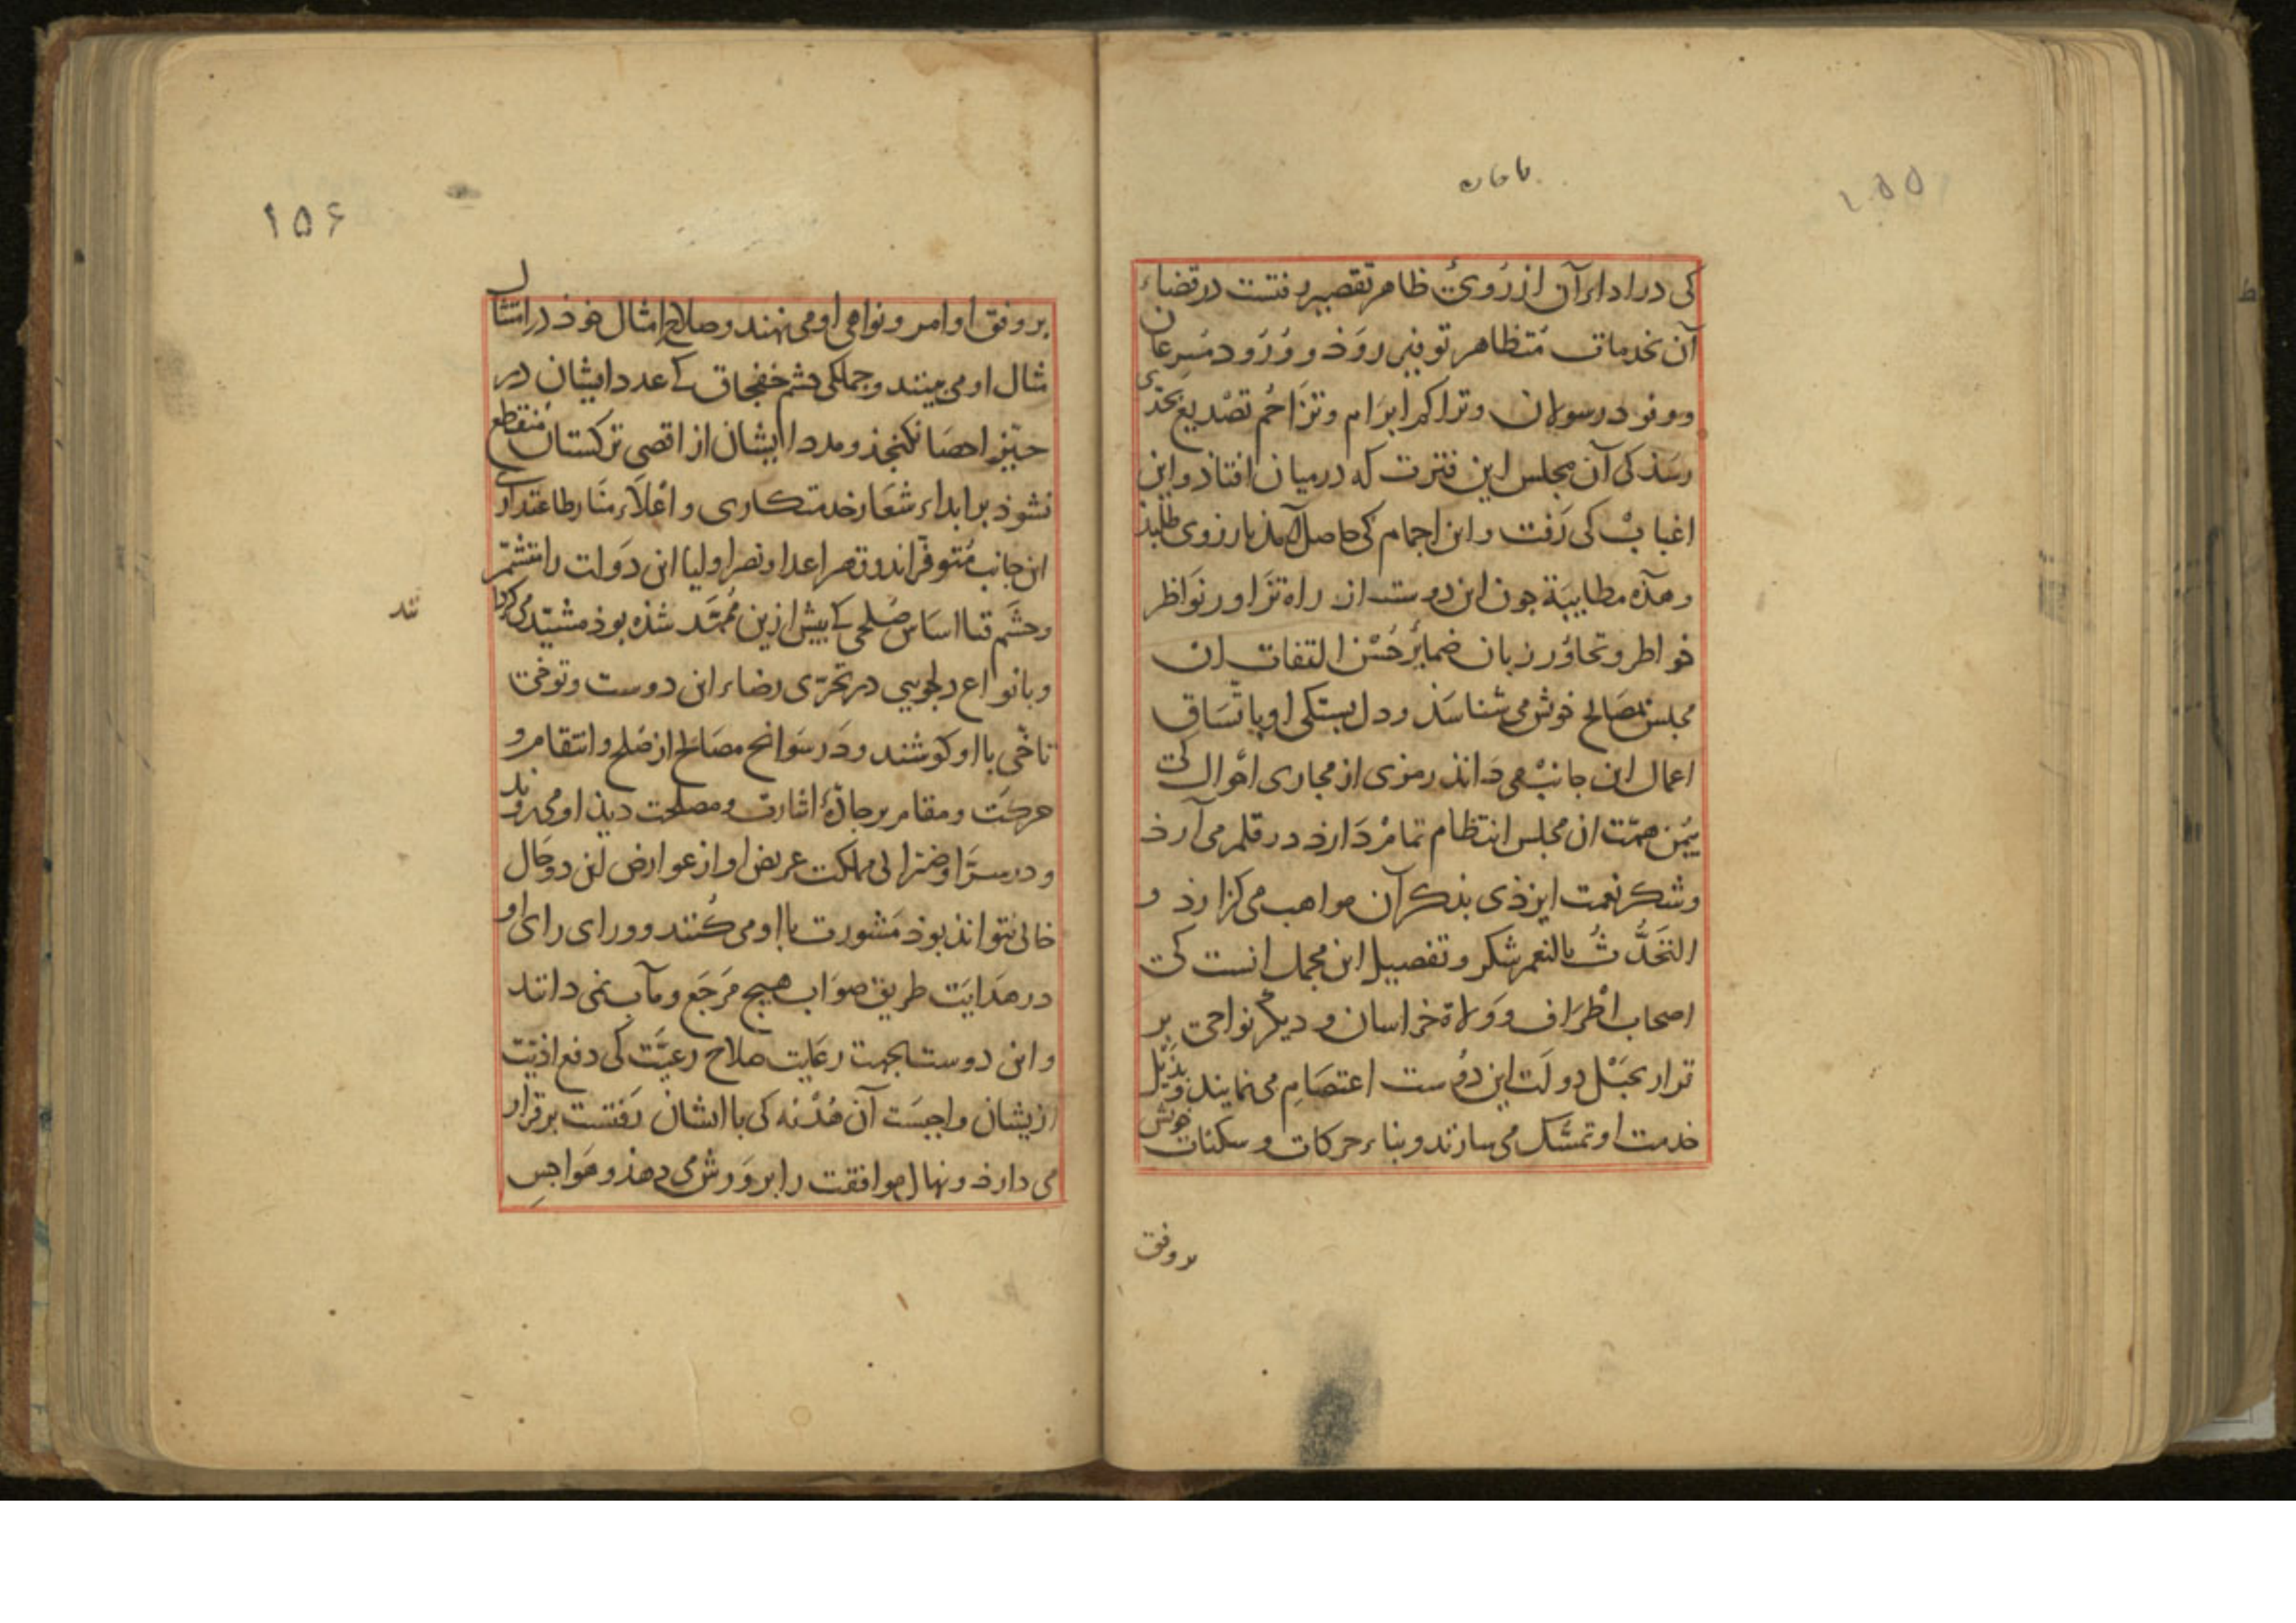 ۱۵۵
کی در اداء آن از رُویِ ظاهر تقصیر رفتست در قضاء
آن بخدمات مُتظاهر توفیر روَذ و وُرُود مُسرعان
و وفود رسولان و تراکم ابرَام و تزَاحُم تصْدیع بحَدّی
رسَذ کی آن مجلس این فترت که در میان افتاذ و این
اغبابْ کی رَفت و این اجمام کی حاصل آمذ بارزوی طلبذ
و هذه مطایبَة چون این دوست از راه تزَاور نوَاظر
خواطر و تحاوُر زبان ضمایر حُسْن التفات ان
مجلس بمصَالح خوش می شناسَذ و دل بستکی او باتّسَاق
اعمال این جانبْ می دَانذ رمزی از مجاری احْوال کی
بیُمن همّت ان مجلس انتظام تمامْ دَارذ در قلم می آرذ
و شکر نعمت ایزذی بذکر آن مواهب می کزارذ و
التَحَدُّثُ بالنعم شکر و تفصیل این مجمل انست کی
اصحاب اطْرَاف و وَلاة خراسان و دیکر نواحی بر
قرار بحَبْل دولَت این دوُست اعتصَام می نمایند و بذَیْل
خدمت او تمسّک می سازند و بناء حرکات و سکنات خوش
بر وفق
۱۵۶
بر وفق اوامر و نواهی او می نهند و صلاح امثال خوذ در امتثال
مثال او می بینند و جملکی حشم خفجاق که عدد ایشان در
حیّز احصَا نکنجذ و مدد ایشان از اقصی ترکستان مُنقطع
نشوذ بر ابداء شعَار خدمتکاری و اعْلاء منَار طاعتداری
این جانب مُتوفّراند و قهر اعدا و نصر اولیا این دَولت را متشمّر
و حشَم قتا اسَاس صُلحی که بیش ازین مُمَهَّد شذه بوذ مشیّد می کرداند
و بانواع دلجویی در تحرّی رضاء این دوست و توخّی
تاخّی با او کوشند و دَر سَوانح مصَالح از صُلح و انتقام و
حرکَت و مقام بر جادّۀ اشارت و مصلحت دیذ او می روند
و در سرّا و ضرّا کی مملکت عریض او از عوارض این دو حَال
خالی نتوانذ بوذ مَشورت با او می کُنند و ورای رای او
در هدَایَت طریق صوَاب هیچ مَرجَع و مآب نمی دانند
و این دوست بجهت رعَایت صلاح رعیَّت کی دفع اذیّت
ازیشان واجبَست آن هُدْنه کی با ایشان رَفتست برقرار
می دارذ و نهال موافقت را برْوَرش می دهذ و هَواجسِ